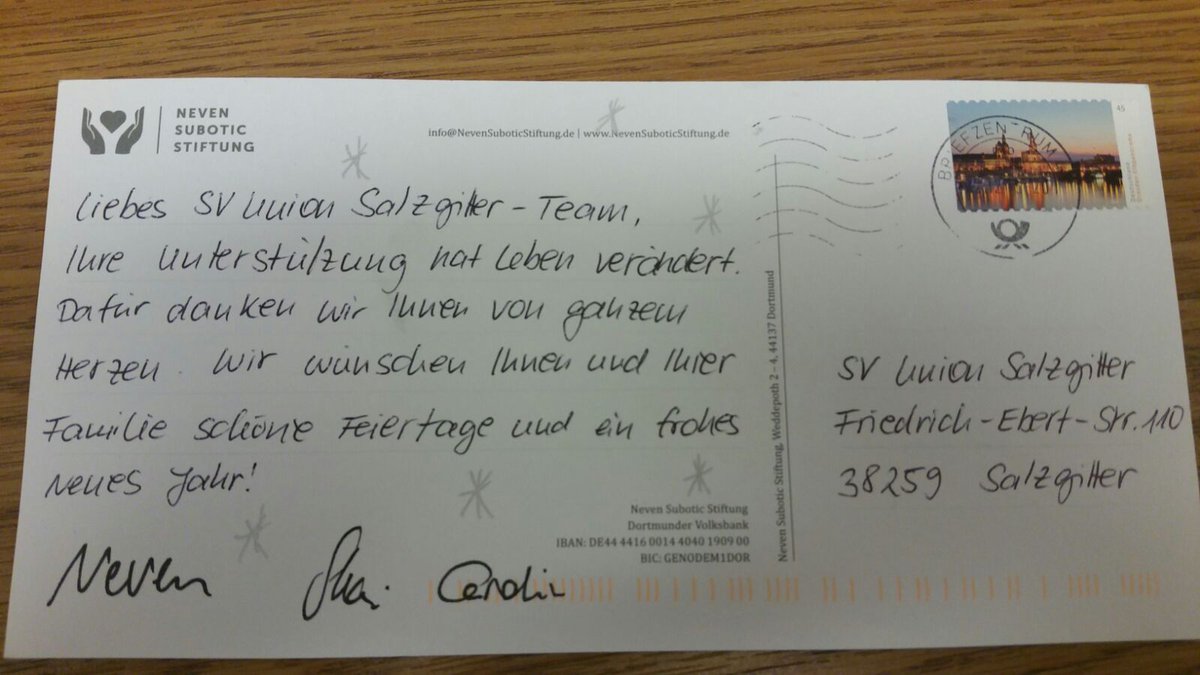 NEVEN
SUBOTIC
STIFTUNG
info@NevenSuboticStiftung.de | www.NevenSuboticStiftung.de
Liebes SV Union Salzgitter-Team,
Ihre Unterstützung hat Leben verändert.
Dafür danken wir Ihnen von ganzem
Herzen. Wir wünschen Ihnen und Ihrer
Familie schöne Feiertage und ein frohes
neues Jahr!
Neven
Carolin
Neven Subotic Stiftung
Dortmunder Volksbank
IBAN: DE44 4416 0014 4040 1909 00
BIC: GENODEM1DOR
Neven Subotic Stiftung, Weddepoth 2 – 4, 44137 Dortmund
45
BRIEFZENTRUM
SV Union Salzgitter
Friedrich-Ebert-Str. 110
38259 Salzgitter